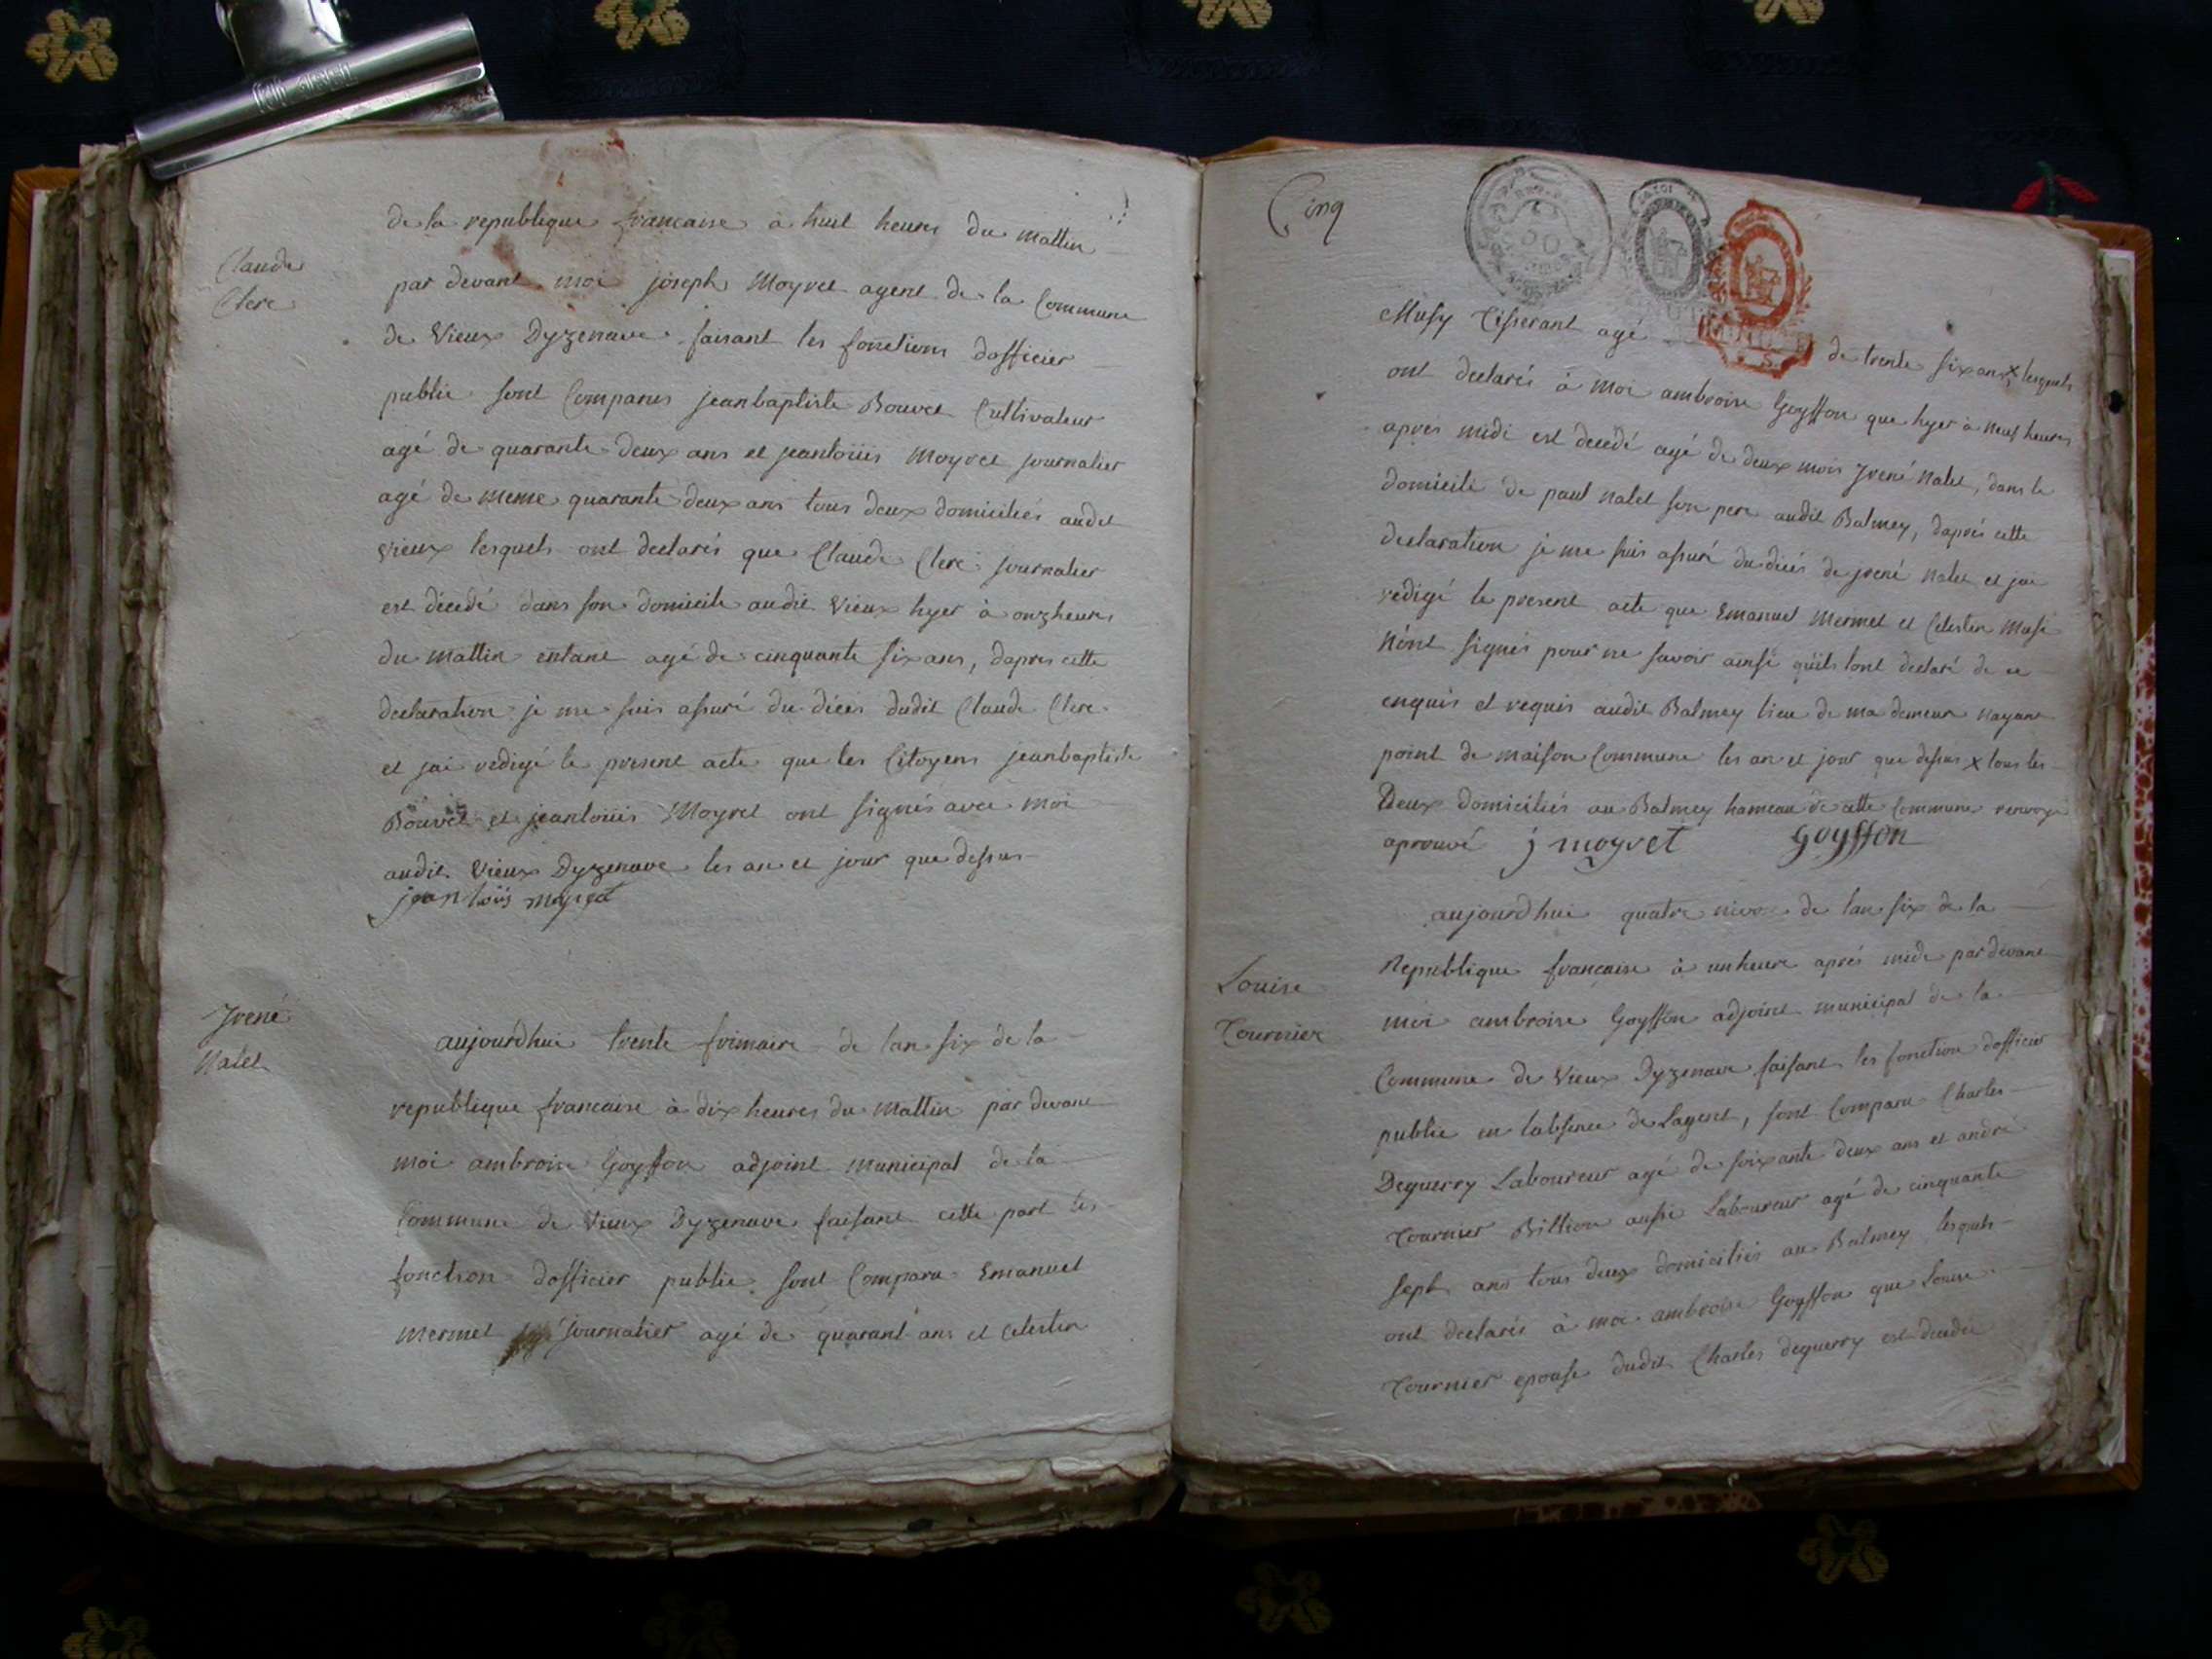 de la republique francaise à huit heures du mattin
Claude
Clerc
par devant moi joseph Moyret agent de la Commune
de Vieux Dyzenave faisant les fonctions dofficier
public sont Comparus jeanbaptiste Bouvet Cultivateur
agé de quarante deux ans et jeanloüis Moyret journalier
agé de meme quarante deux ans tous deux domiciliés audit
vieux lesquels ont declarés que Claude Clerc journalier
est décedé dans son domicile audit Vieux hyer à onzheures
du mattin etant agé de cinquante six ans, dapres cette
declaration je me suis assuré du décés dudit Claude Clerc
et jai redigé le present acte que les Citoyens jeanbaptiste
Bouvet et jeanloüis Moyret ont signés avec moi
audit Vieux Dyzenave les an et jour que dessus
jean loüis moyret
Jrené
Nalet
aujourdhui trente frimaire de lan six de la
republique francaise à dix heures du mattin par devant
moi ambroise Goyffon adjoint municipal de la
Commune de Vieux Dyzenave faisant cette part les
fonction dofficier public sont Comparu Emanuel
Mermet journalier agé de quarant ans et celestin
Cinq
Musy Tisserant agé de trente six ans x lesquels
ont declarés à moi ambroise Goyffon que hyer à neuf heures
aprés midi est decedé agé de deux mois Jrené Nalet, dans le
domicile de paul nalet son pere audit Balmey, daprés cette
declaration je me suis assuré du décés de jrené nalet et jai
redigé le present acte que Emanuel Mermet et Celestin Musi
nont signés pour ne savoir ainsi quils lont declaré de ce
enquis et requis audit Balmey lieu de ma demeure nayant
point de maison Commune les an et jour que dessus x tous les
Deux domiciliés au Balmey hameau de cette Commune renvoye
aprouvé j moyret Goyffon
Louise
Tournier
aujourdhui quatre nivose de lan six de la
Republique francaise à unheure aprés midi pardevant
moi ambroise Goyffon adjoint municipal de la
Commune de Vieux Dyzenave faisant les fonction dofficier
public en labsence de Lagent, sont Comparu Charles
Deguerry Laboureur agé de soixante deux ans et andré
Tournier Billion aussi Laboureur agé de cinquante
sept ans tous deux domiciliés au Balmey lesquels
ont declarés à moi ambroise Goyffon que Louise
Tournier epouse dudit Charles deguerry est decedée